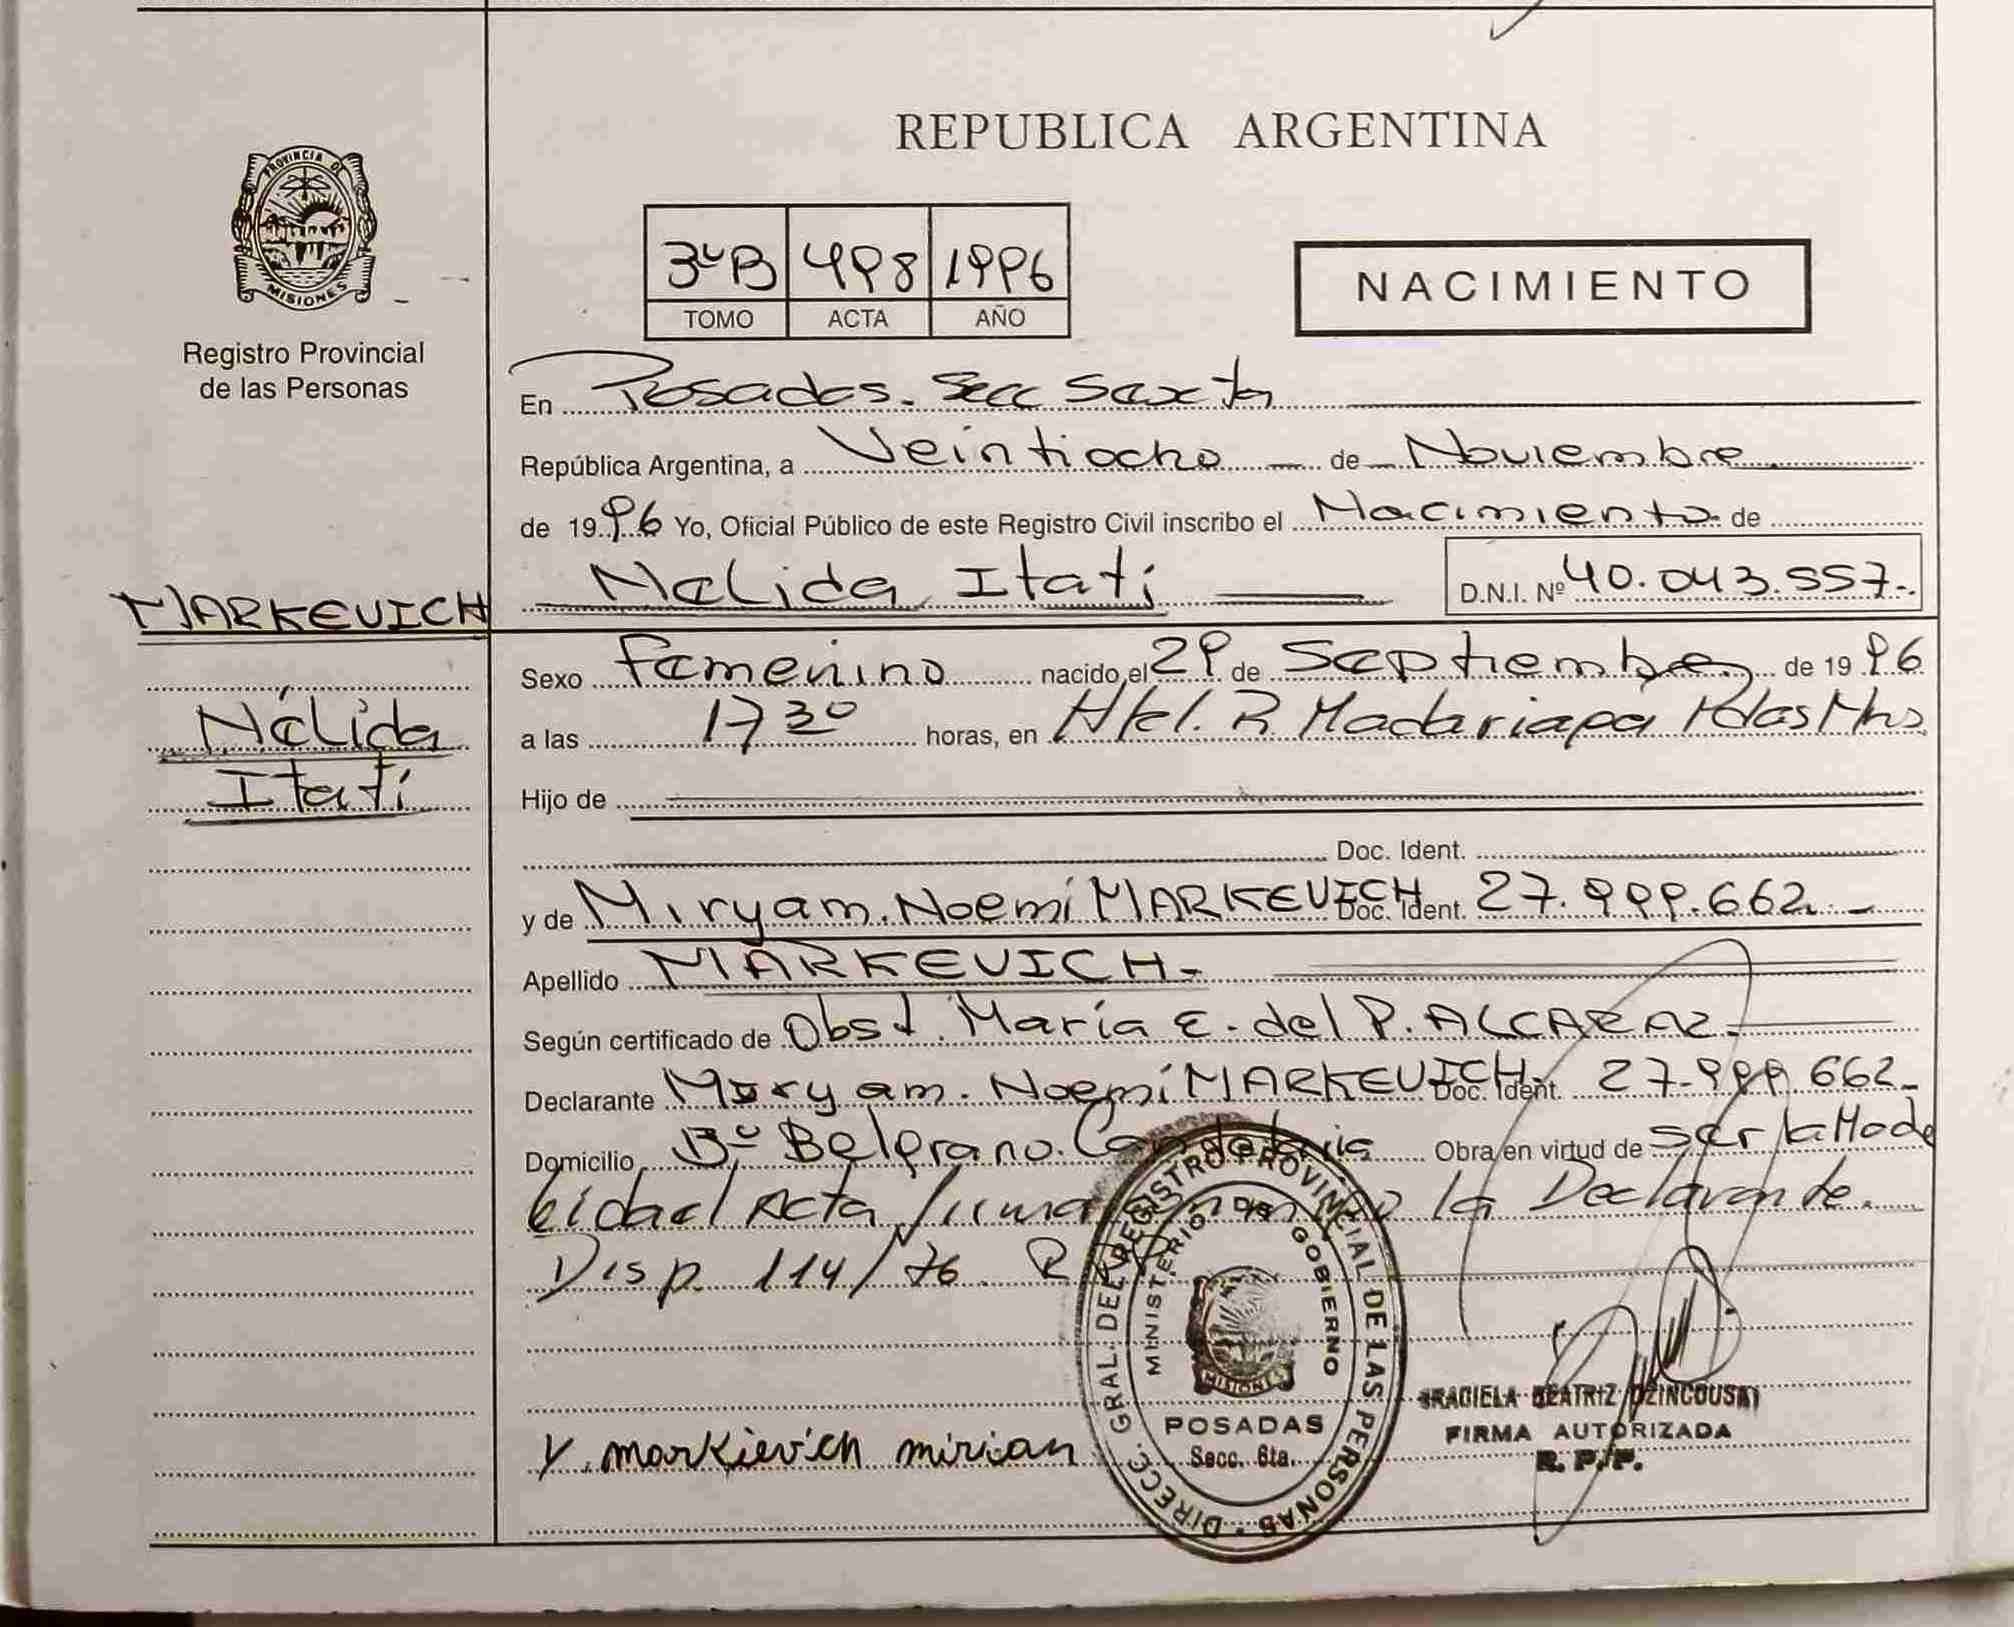 REPUBLICA ARGENTINA
PROVINCIA DE
MISIONES
Registro Provincial
de las Personas
3ºB 498 1996
TOMO ACTA AÑO
NACIMIENTO
En Posadas. Secc Sexta
República Argentina, a Veintiocho de Noviembre
de 1996 Yo, Oficial Público de este Registro Civil inscribo el Nacimiento de
Nélida Itatí D.N.I. Nº 40.043.557.-
MARKEVICH
Nélida
Itatí
Sexo femenino nacido el 29 de Septiembre de 1996
a las 17 30 horas, en Htal. R. Madariaga Pdas Mns.
Hijo de
Doc. Ident.
y de Miryam Noemí MARKEVICH Doc. Ident. 27.999.662.-
Apellido MARKEVICH.-
Según certificado de Obst. María E. del P. ALCARAZ.-
Declarante Miryam Noemí MARKEVICH Doc. Ident. 27.999.662.-
Domicilio Bº Belgrano. Candelaria Obra en virtud de ser la Madre
Leida el Acta firma la Declarante.
Disp. 114/76 R
DIRECC. GRAL. DEL REGISTRO PROVINCIAL DE LAS PERSONAS
MINISTERIO DE GOBIERNO
MISIONES
POSADAS
Secc. 6ta.
markievich mirian
GRACIELA BEATRIZ DZINCOUSKI
FIRMA AUTORIZADA
R. P. P.